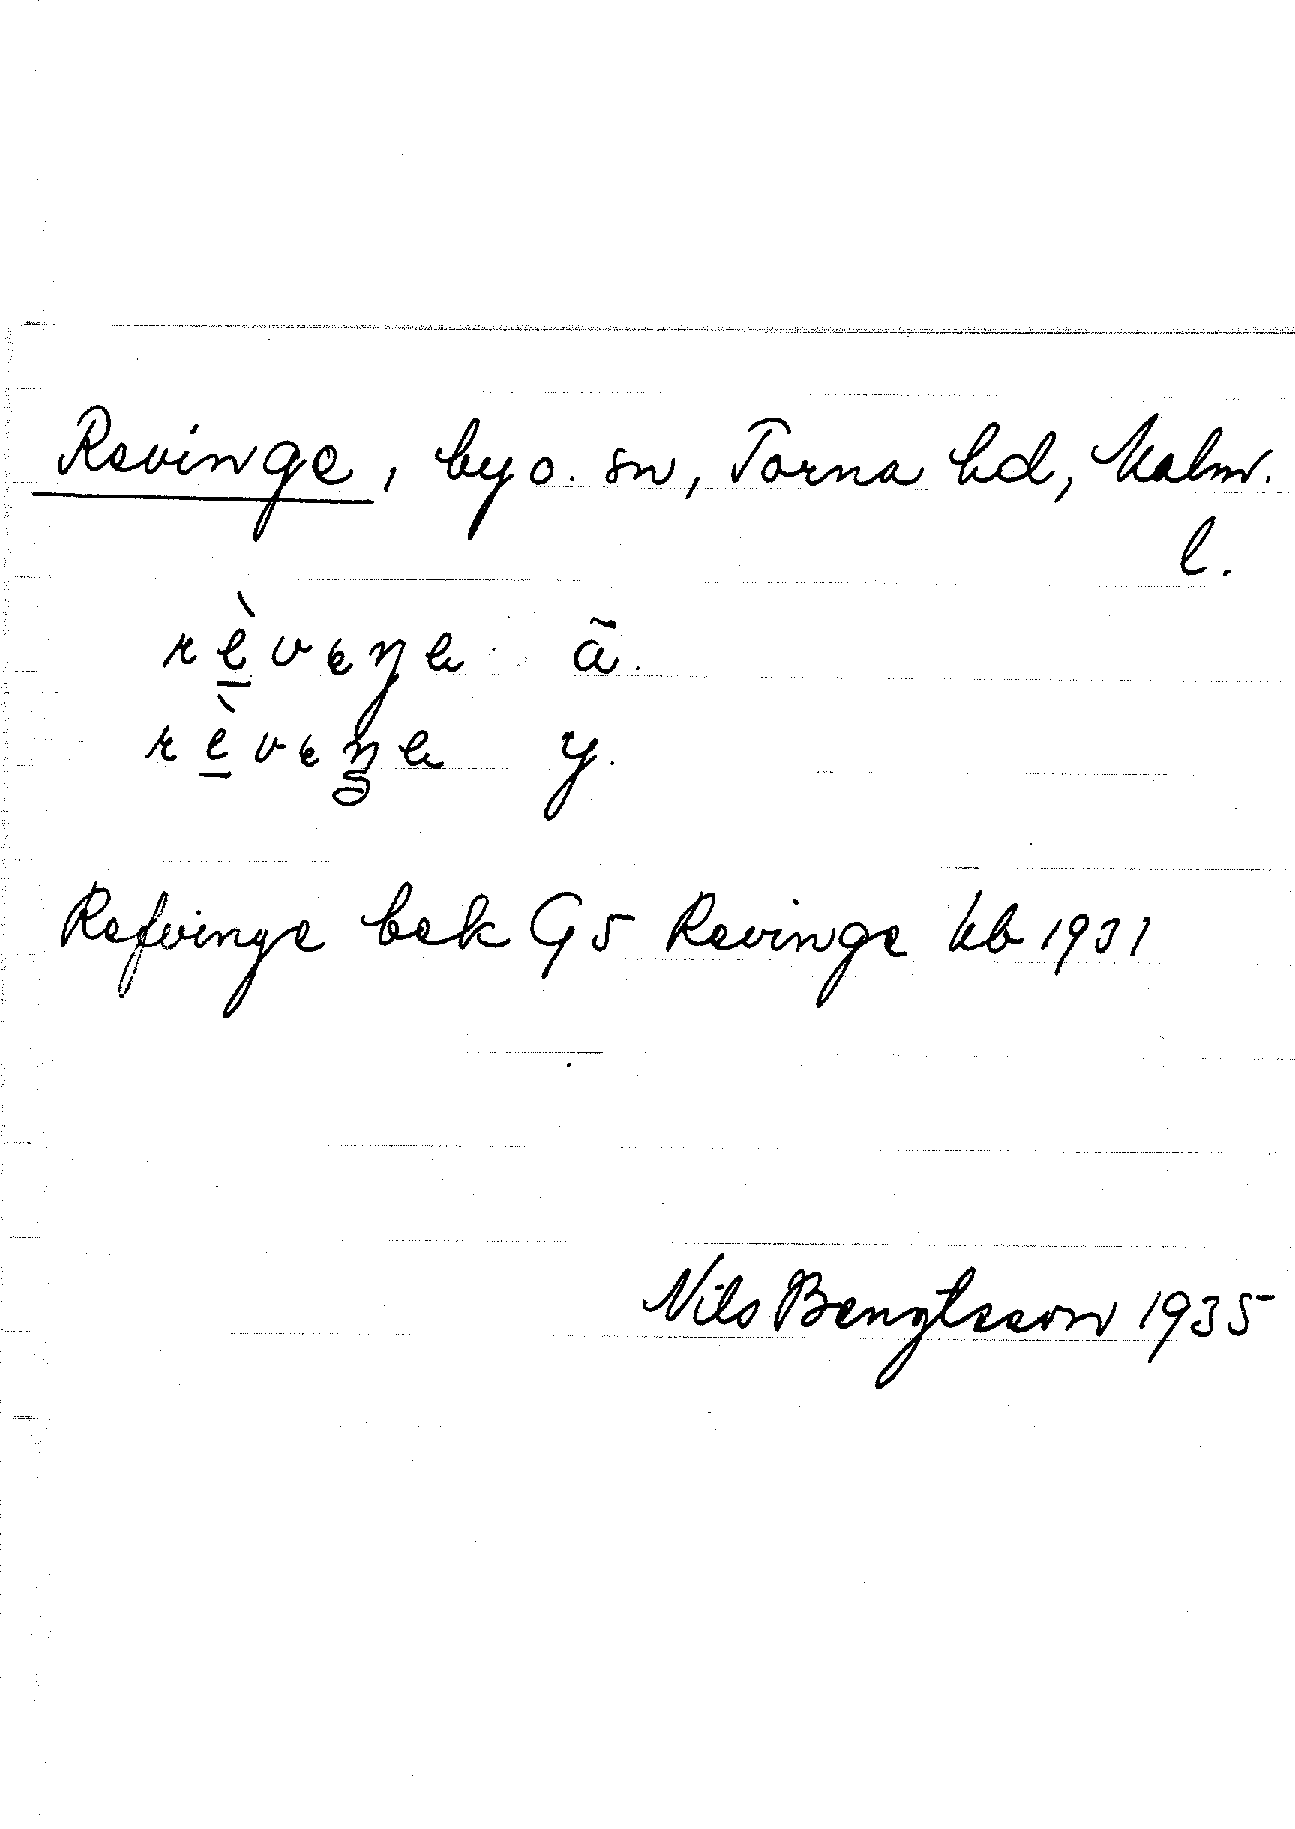 Revinge, by o. sn, Torna hd, Malm.
l.
rè̱vɛŋe ã.
rè̱vɛŋe y.
Refvinge bek G5 Revinge kb 1931
Nils Bengtsson 1935